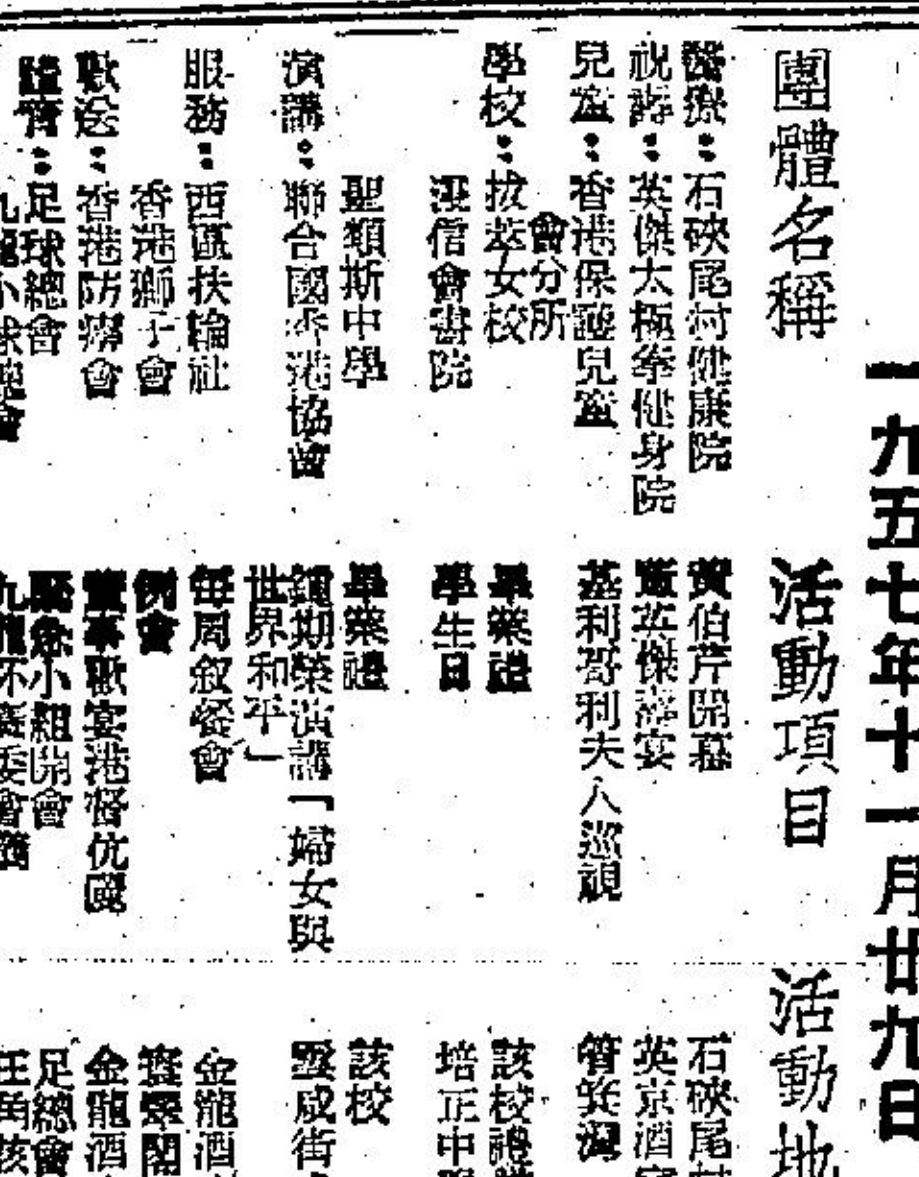 一九五七年十一月廿九日
團體名稱 活動項目 活動地
醫療：石硤尾村健康院 黃伯芹開幕 石硤尾村
祝壽：英傑太極拳健身院 董英傑壽宴 英京酒家
兒童：香港保護兒童 基利哥利夫人巡視 筲箕灣
會分所
學校：拔萃女校 畢業禮 該校禮
浸信會書院 學生日 培正中
聖類斯中學 畢業禮 該校
演講：聯合國香港協會 鍾期榮演講「婦女與 雪廠街
世界和平」
服務：西區扶輪社 每周叙餐會 金龍酒
香港獅子會 例會
歡送：香港防癆會 董事歡宴港督伉儷 金龍酒
體育：足球總會 緊急小組開會 足總會
九龍小球會 九龍杯賽委會 旺角